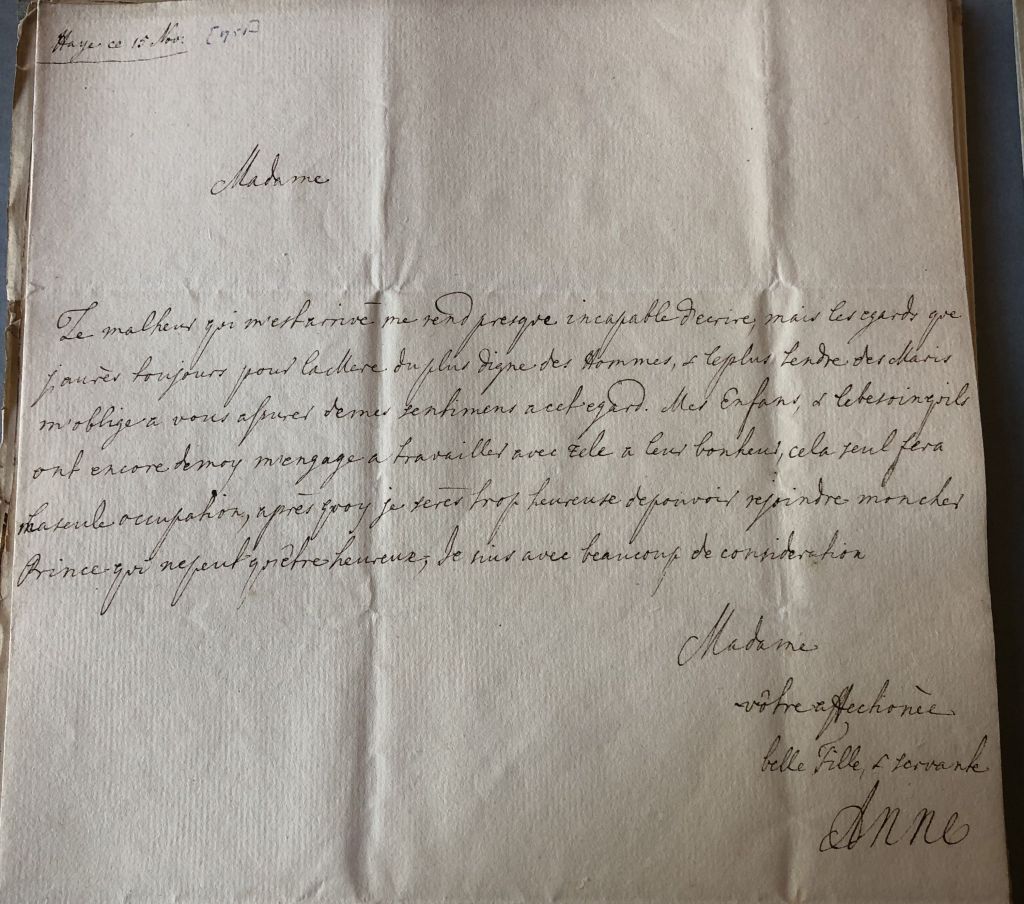 Haye ce 15 Nov: [1751]
Madame
Le malheur qui m'est arrivé me rend presque incapable d'ecrire, mais les egards que
j'aurès toujours pour la Mere du plus digne des Hommes, & le plus tendre des Maris
m'oblige a vous assurer de mes sentimens a cet egard. Mes Enfans & le besoin qu'ils
ont encore de moy m'engage a travailler avec zele a leur bonheur, cela seul fera
ma seule occupation, après quoy je serès trop heureuse de pouvoir rejoindre mon cher
Prince qui ne peut qu'être heureux, Je suis avec beaucoup de consideration
Madame
vôtre affectionèe
belle Fille, & servante
Anne